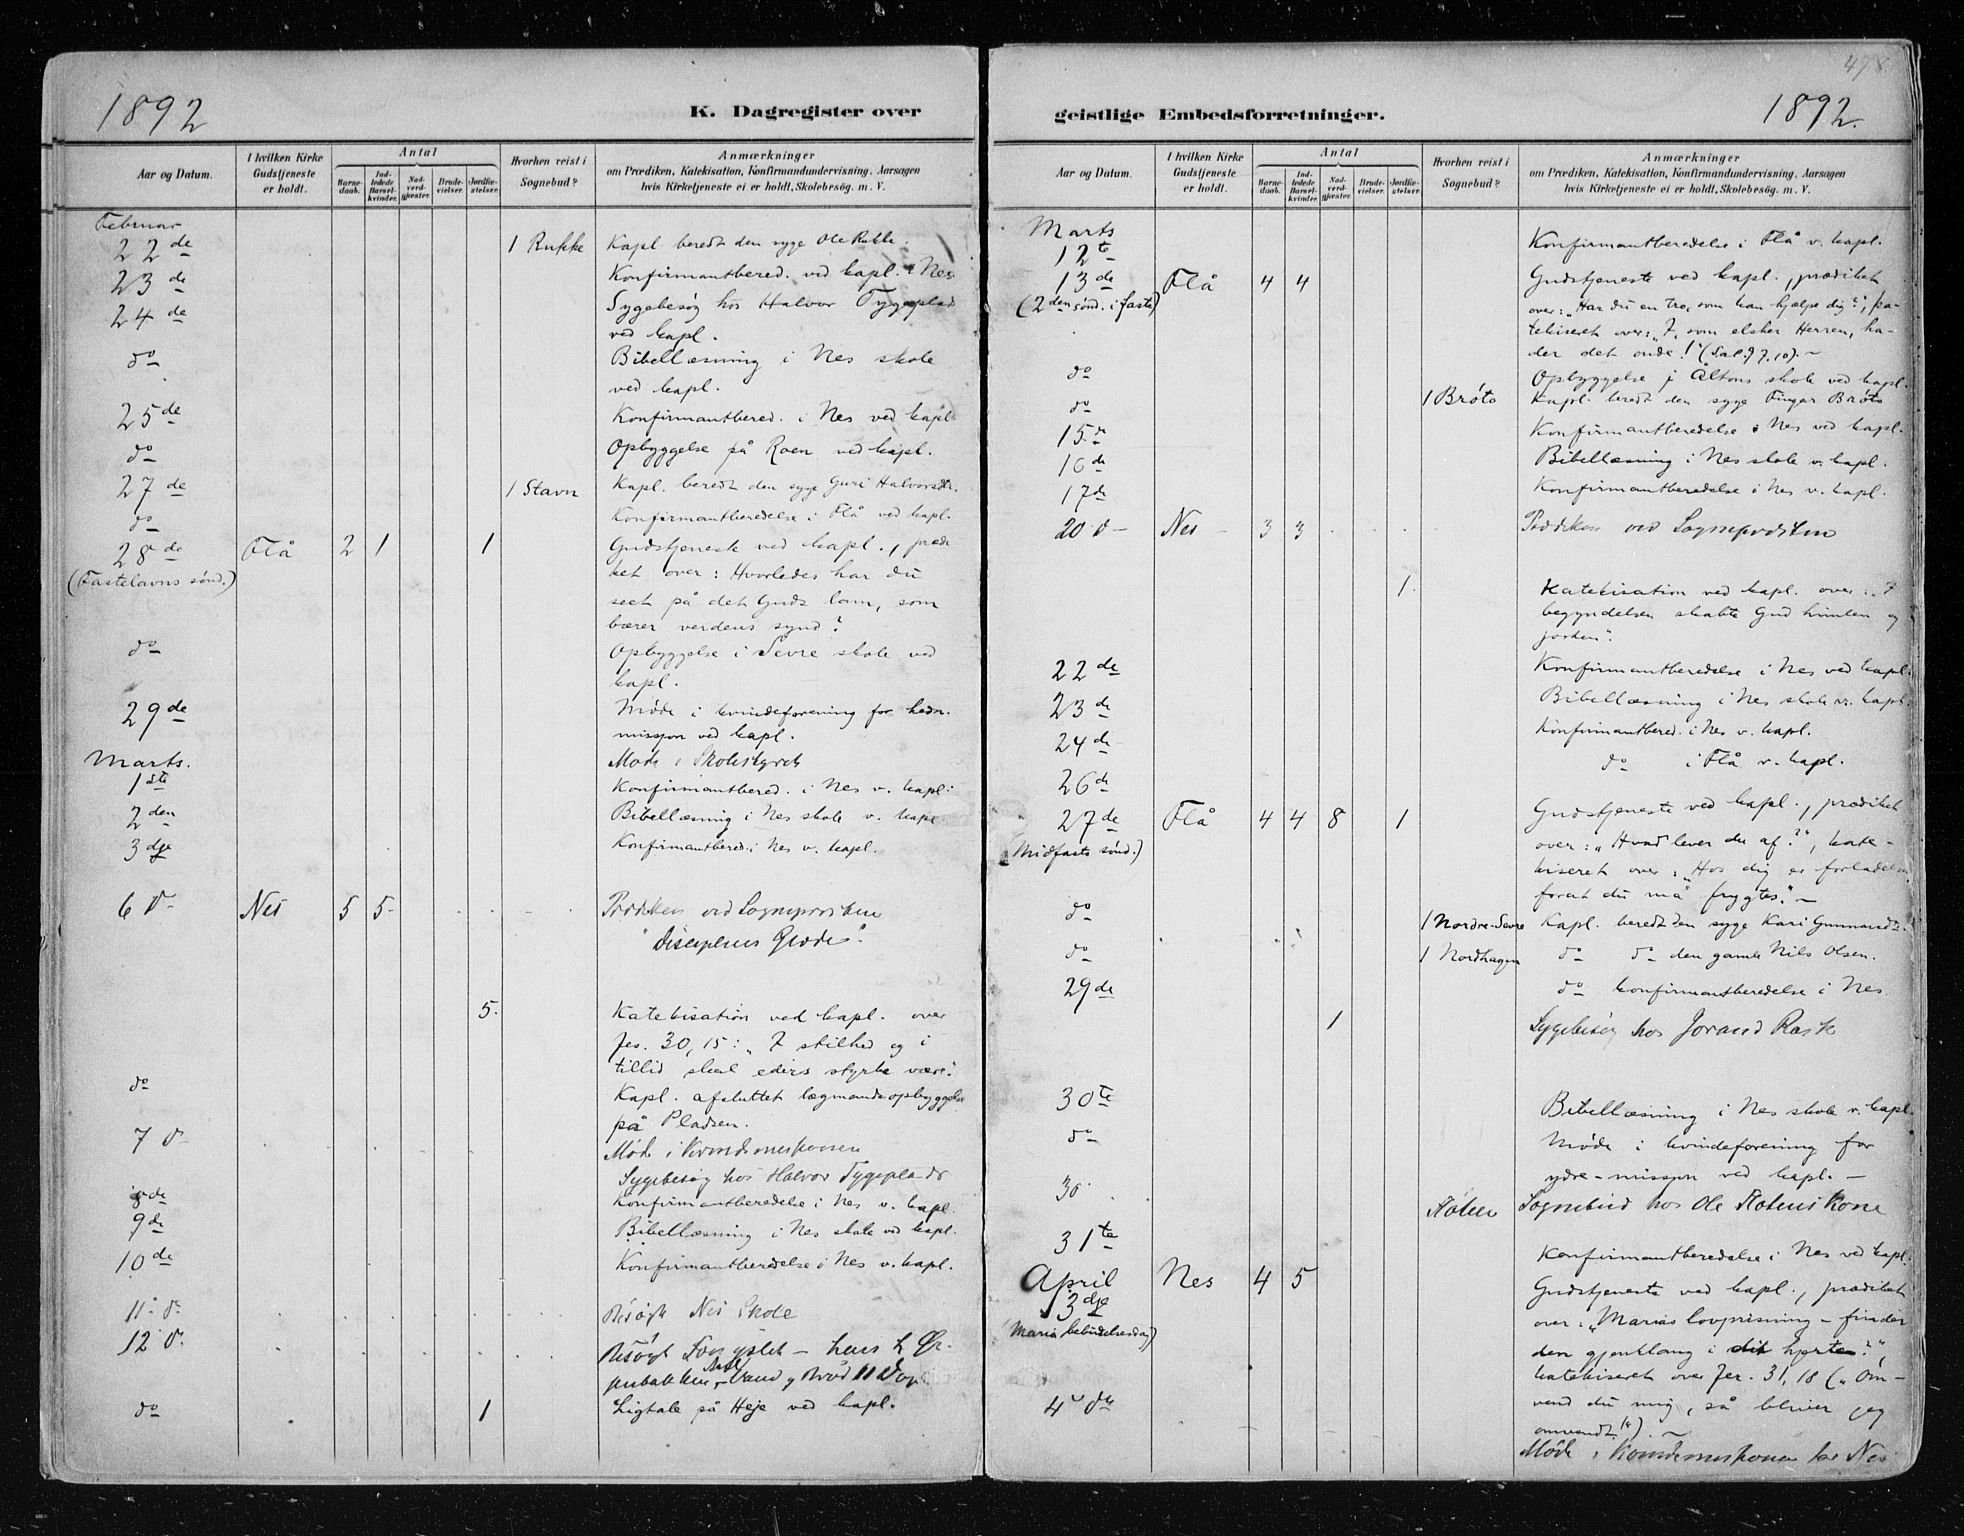 1892
K. Dagregister over
Aar og Datum.
I hvilken Kirke Gudstjeneste er holdt.
Antal
Barnedaab.
Indledede Barselkvinder.
Nadverdgjester.
Brudevielser.
Jordfæstelser.
Hvorhen reist i Sognebud?
Anmærkninger
om Prædiken, Katekisation, Konfirmandundervisning, Aarsagen
hvis Kirketjeneste ei er holdt, Skolebesøg. m. V.
Februar
22de 1 Rukke Kapl. beredt den syge Ole Rukke.
23de Konfirmantbered. ved kapl. i Nes
24de Sygebesøg hos Halvor
ved kapl.
do Bibellæsning i Nes skole
ved kapl.
25de Konfirmantbered. i Nes ved kapl.
do Opbyggelse på Roen ved kapl.
27de 1 Stavn Kapl. beredt den syge Guri Halvorsdtr.
do Konfirmantberedelse i Flå ved kapl.
28de Flå 2 1 1 Gudstjeneste ved kapl., prædi
(Fastelavns sønd.) ket over: Hvorledes har du
seet på det Guds lam, som
bærer verdens synd?
do Opbyggelse i Sevre skole ved
kapl.
29de Møde i kvindeforening for hedn.
missjon ved kapl.
Marts. Møde i Skolestyret
1ste Konfirmantbered. i Nes v. kapl.
2den Bibellæsning i Nes skole v. kapl.
3dje Konfirmantbered. i Nes v. kapl.
6 d Nes 5 5 Prædiken ved Sognepresten
"Disciplens Glæde".
5. Katekisation ved kapl. over
Jes. 30,15: "I stilhed og i
tillid skal eders styrke være".
do Kapl. afsluttet lægmandsopbyggelse
på Pladsen.
7 d Møde i
Sygebesøg hos Halvor
8de Konfirmantberedelse i Nes v. kapl.
9de Bibellæsning i Nes skole ved kapl.
10de Konfirmantberedelse i Nes v. kapl.
11 d Besøgt Nes Skole
12 d Besøgt
do 1 Ligtale på Heje ved kapl.
478
geistlige Embedsforretninger.
1892.
Aar og Datum.
I hvilken Kirke Gudstjeneste er holdt.
Antal
Barnedaab.
Indledede Barselkvinder.
Nadverdgjester.
Brudevielser.
Jordfæstelser.
Hvorhen reist i Sognebud?
Anmærkninger
om Prædiken, Katekisation, Konfirmandundervisning, Aarsagen
hvis Kirketjeneste ei er holdt, Skolebesøg. m. V.
Marts
12te Konfirmantberedelse i Flå v. kapl.
13de Flå 4 4 Gudstjeneste ved kapl., prædiket
(2den sønd. i faste) over: "Har du en tro, som kan hjælpe dig?", ka-
tekiseret over: "I, som elsker Herren, ha-
der det onde!" (Sal. 97.10). –
do Opbyggelse i skole ved kapl.
do 1 Brøto Kapl. beredt den syge Brøto
15de Konfirmantberedelse i Nes ved kapl.
16de Bibellæsning i Nes skole v. kapl.
17de Konfirmantberedelse i Nes v. kapl.
20 d – Nes – 3 3 Prædiken ved Sognepresten
1. Katekisation ved kapl. over: "I
begyndelsen skabte Gud himlen og
jorden".
22de Konfirmantberedelse i Nes ved kapl.
23de Bibellæsning i Nes skole v. kapl.
24de Konfirmantbered. i Nes v. kapl.
26de do i Flå v. kapl.
27de Flå 4 4 8 1 Gudstjeneste ved kapl., prædiket
(Midfaste sønd.) over: "Hvad lever du af?", kate-
kiseret over: "Hos dig er forladelse,
forat du må frygtes". –
do 1 Nordre-Sevre Kapl. beredt den syge Kari Gunnarsdtr.
do 1 Nordhagen do do den gamle Nils Olsen.
29de do konfirmantberedelse i Nes.
1 Sygebesøg hos Jorand Rask
30te Bibellæsning i Nes skole v. kapl.
do Møde i kvindeforening for
ydre-missjon ved kapl. –
30 Støten Sognebud hos Ole Støtens Kone
31te Konfirmantberedelse i Nes ved kapl.
April Nes 4 5 Gudstjeneste ved kapl., prædiket
3dje over: "Marias lovprisning – finder
(Maria bebudelsesdag) den gjenklang i dit hjerte?"
katekiseret over Jer. 31,18 ("Om-
vend du mig, så bliver jeg
omvendt"). –
4 de Møde i for Nes